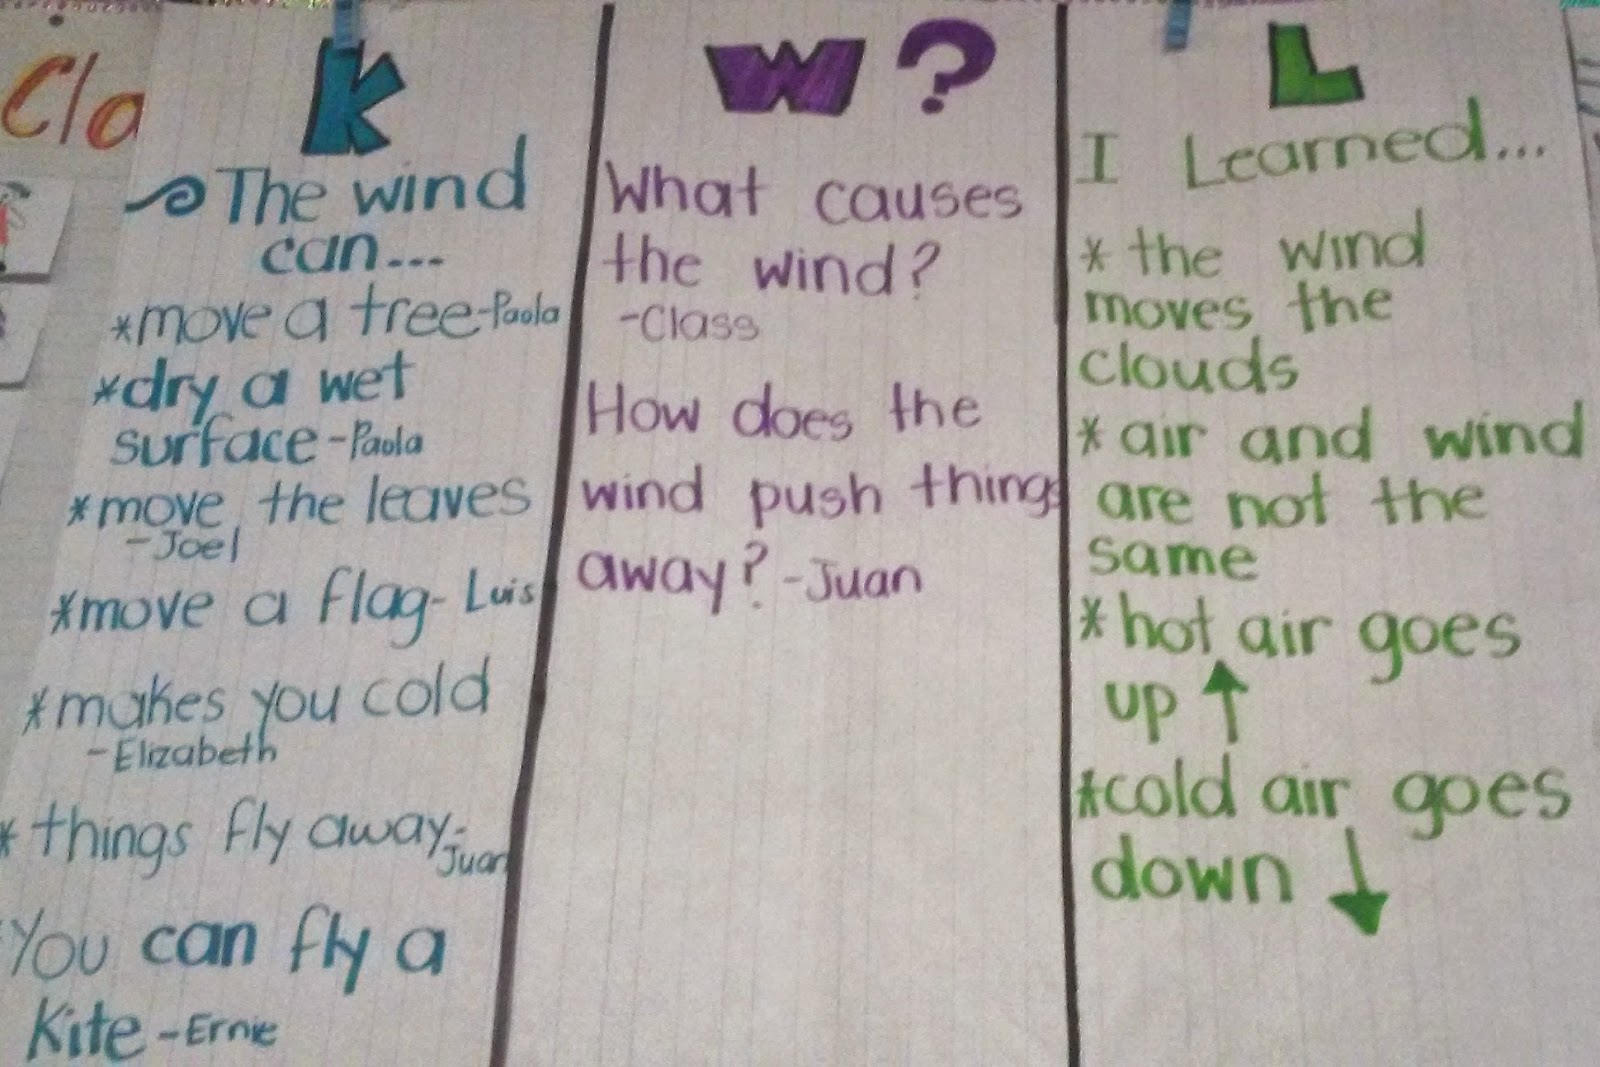 Cla
K
The wind
can...
*move a tree-Paola
*dry a wet
surface-Paola
*move the leaves
-Joel
*move a flag-Luis
*makes you cold
-Elizabeth
* things fly away-
Juan
You can fly a
Kite-Ernie
W?
What causes
the wind?
-Class
How does the
wind push things
away? -Juan
L
I Learned...
* the wind
moves the
clouds
* air and wind
are not the
same
* hot air goes
up ↑
*cold air goes
down ↓